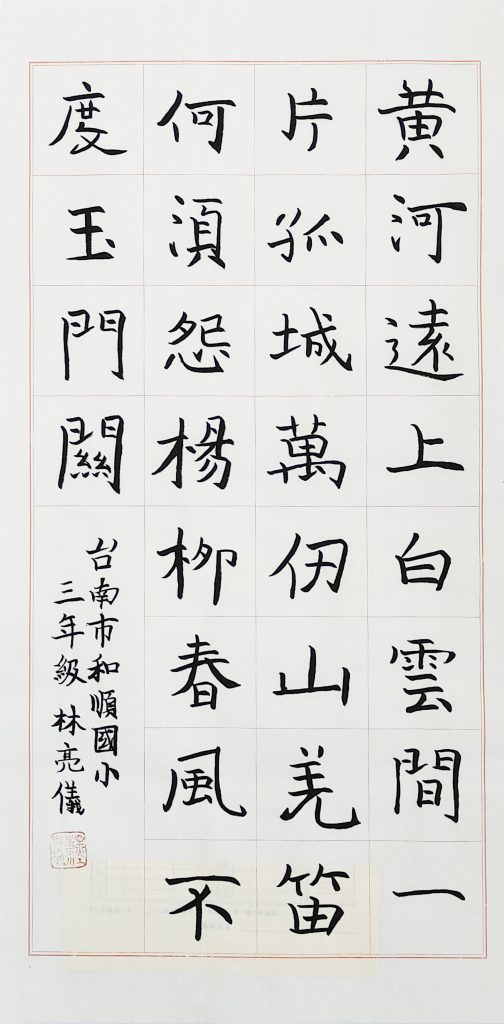 黃河遠上白雲間一
片孤城萬仞山羌笛
何須怨楊柳春風不
度玉門關
台南市和順國小
三年級林亮儀